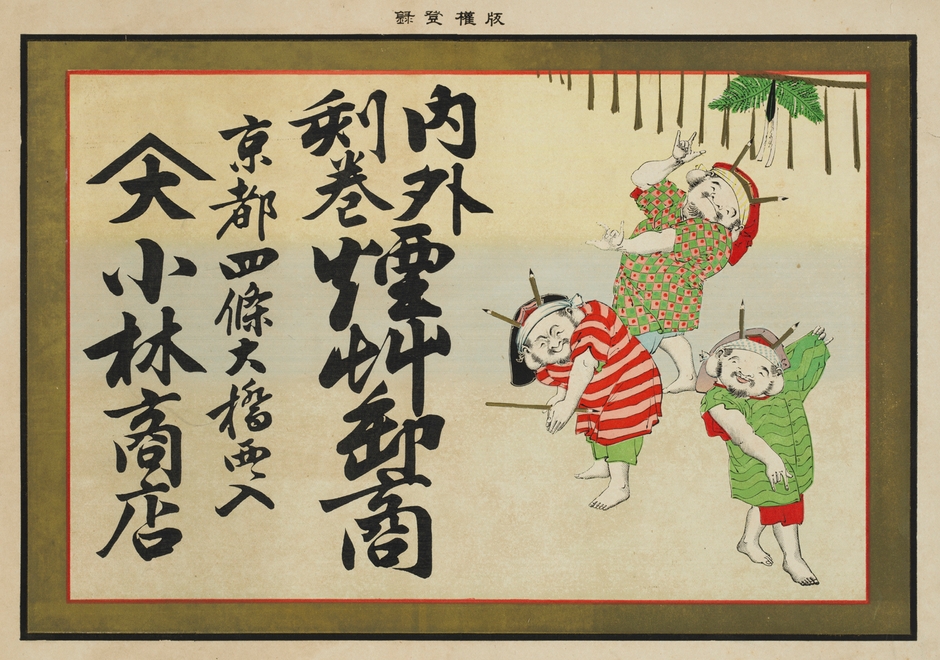 版權登録
内外
刻巻
煙艸卸商
京都四條大橋西入
大
小林商店